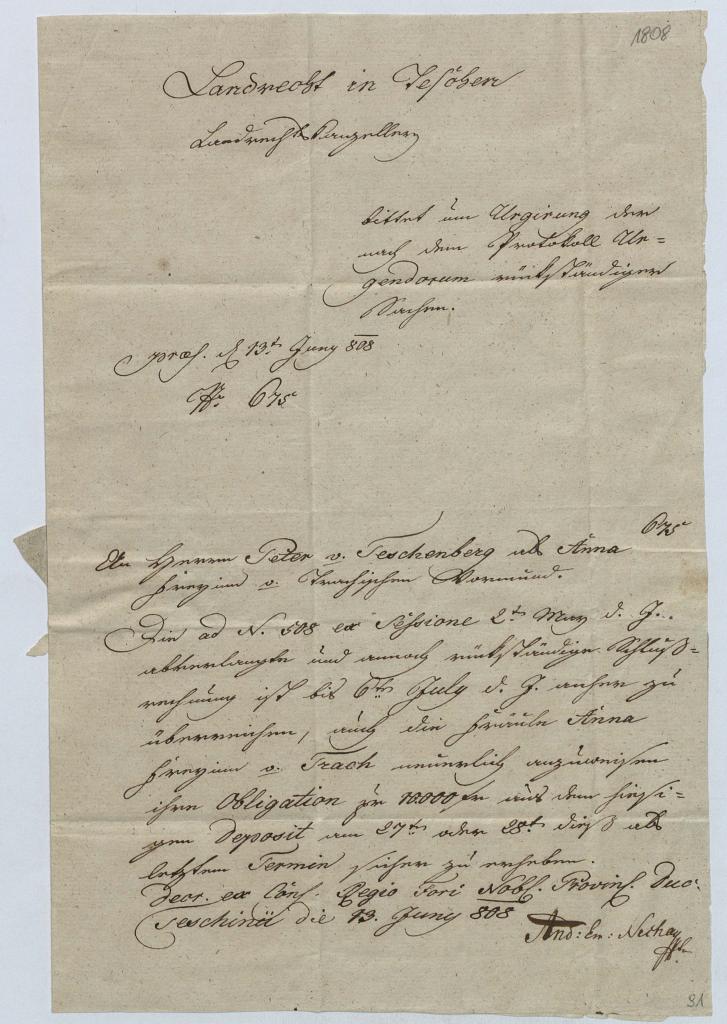 1808
Landrecht in Teschen
Landrechts Kanzelley
bittet um Urgirung der
nach dem Protokoll Ur=
gendorum rückständigen
Sachen.
præs. d 13t Juny 808
Nr. 675
675
An Herrn Peter v. Teschenberg als Anna
Freyinn v. Trachischen Vormund.
Die ad N. 508 ex Sessione 2t May d. J.
abverlangte und annoch rückständige Schluß=
rechnung ist bis 6ten July d. J. anher zu
überreichen, auch die Fräule Anna
Freyinn v. Trach neuerlich anzuweisen
ihre Obligation pr 10.000 fr aus dem hiesi=
gen Deposit am 27t oder 28t dieß als
letztem Termin sicher zu erheben.
Decr. ex Cons. Regio Fori Nobl. Provinl. Duc.
Teschinii die 13. Juny 808
And: Em: Nethay
31